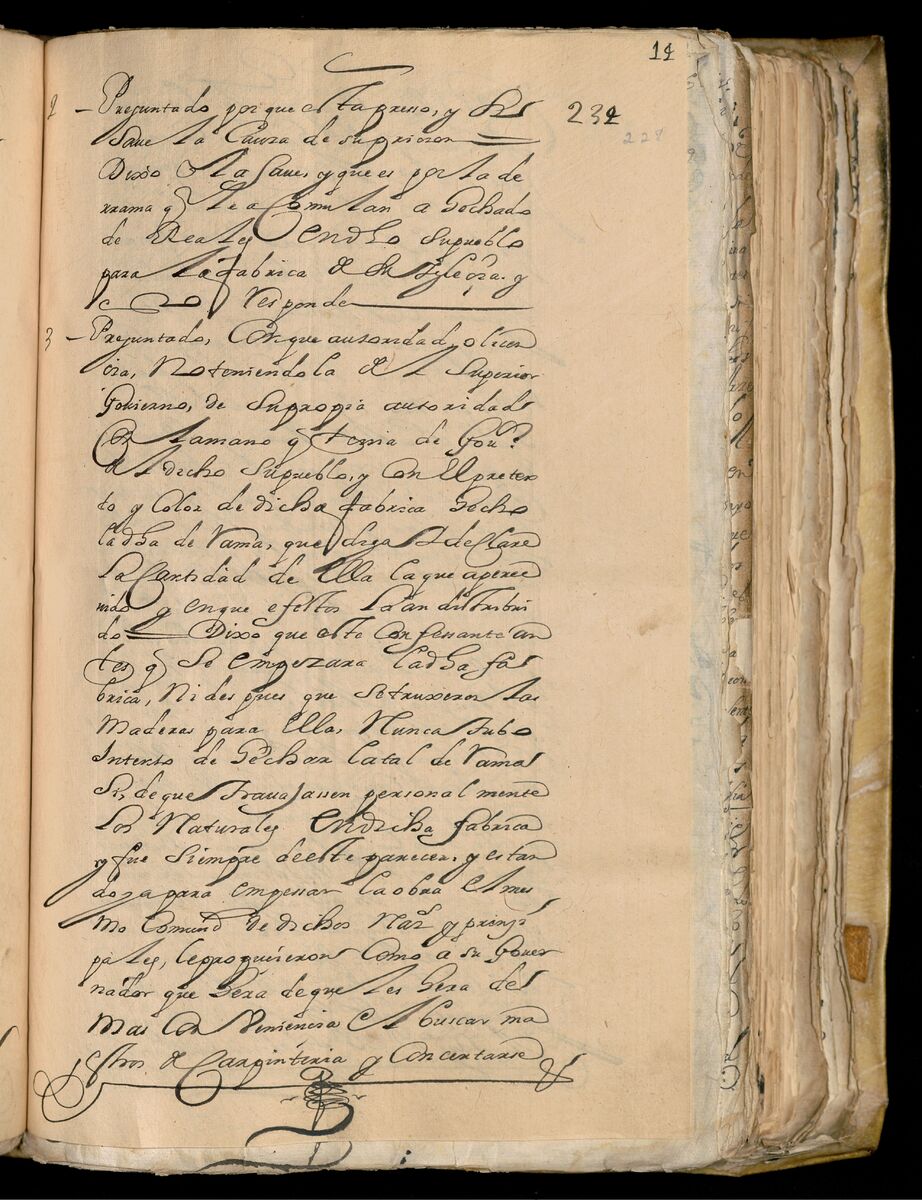 14
234
228
2 - Preguntado por que esta presso, y si
save la Causa de supricion
Dixo q la save, y que es por la de
rrama q le acomulan a hechado
de Reales en dho supueblo
para la fabrica de su Yglecia. y
responde
3 - Preguntado, Con que autoridad, o licen
cia, No teniendola del Superior
Govierno, de supropia autoridad
Con la mano q tenia de Gouor
del dicho supueblo, y con el pretex
to y Color de dicha fabrica hecho
la dha de rrama, que diga y declare
la Cantidad de ella la que aperce
vido y en que efectos la an distribui
do Dixo que este Confessante an
tes q se empezara la dha fa
brica, Ni despues que se truxeron las
Maderas para ella, Nunca tubo
Intento de hechar la tal de rrama
Si, de que travajassen personalmente
Los Naturales en dicha fabrica
y fue siempre de este parecer, y estan
do ya para empessar la obra el mes
mo Comund de dichos Nals y prinsi
pales, le proqusieron Como a su Gover
nador que hera de que les hera de
Mas Conveniencia el buscar ma
estros de Carpinteria y Concertarse